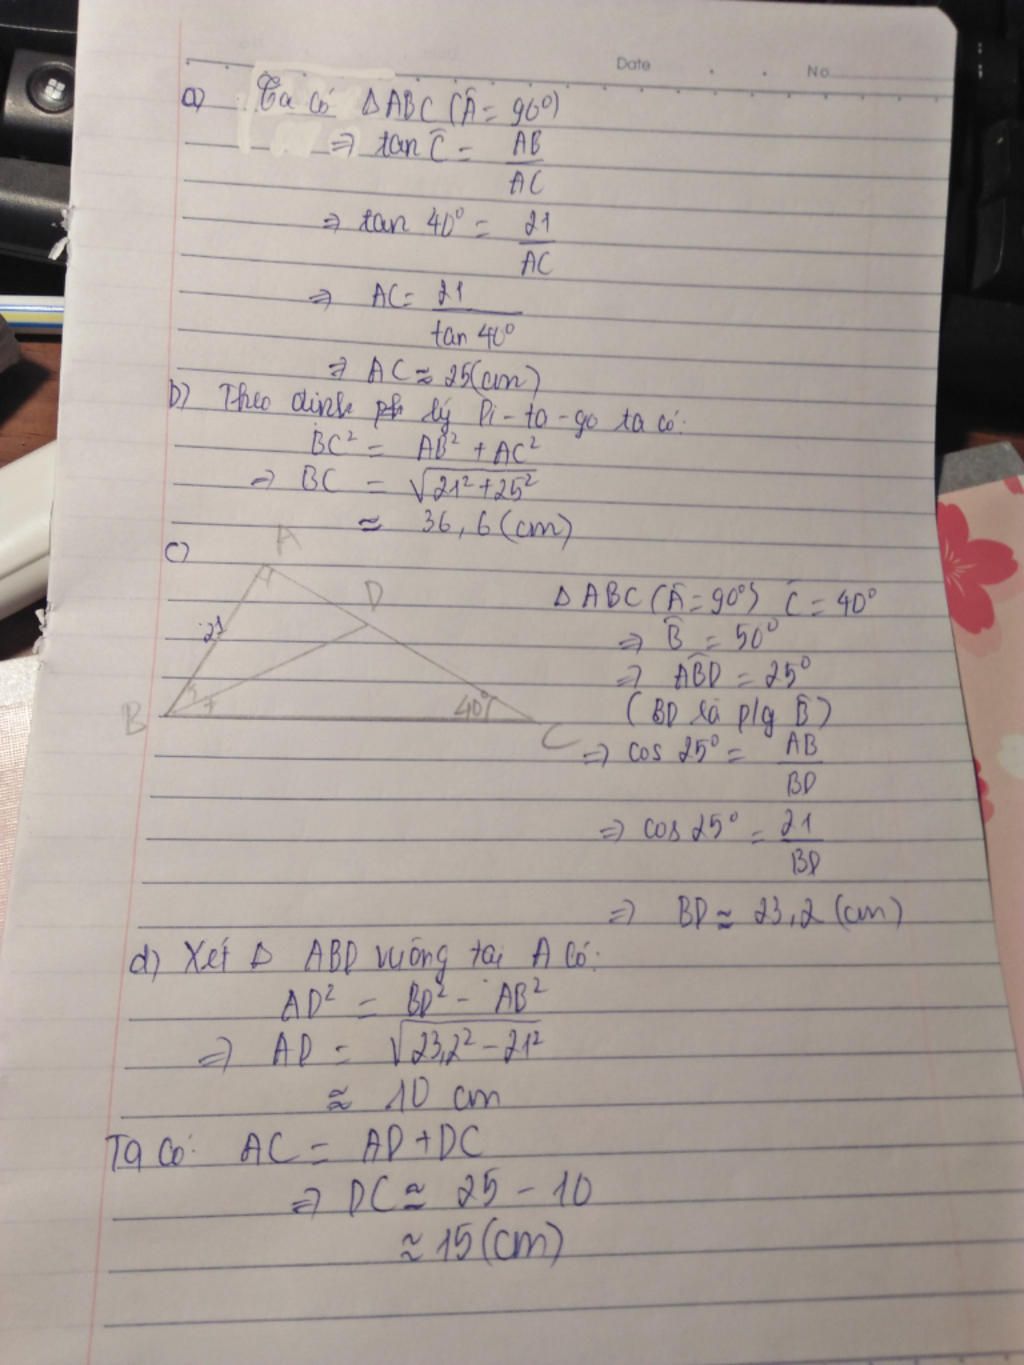 Date
No
a) Ta có ΔABC (Â = 90°)
⇒ tan Ĉ = AB
AC
⇒ tan 40° = 21
AC
⇒ AC = 21
tan 40°
⇒ AC ≈ 25(cm)
b) Theo định lý Pi-ta-go ta có:
BC² = AB² + AC²
⇒ BC = √21² + 25²
≈ 36,6 (cm)
c)
A
D
21
B
40°
C
Δ ABC (Â = 90°) Ĉ = 40°
⇒ B̂ = 50°
⇒ ABD = 25°
(BD là p/g B̂)
⇒ cos 25° = AB
BD
⇒ cos 25° = 21
BD
⇒ BD ≈ 23,2 (cm)
d) Xét Δ ABD vuông tại A có:
AD² = BD² - AB²
⇒ AD = √23,2² - 21²
≈ 10 cm
Ta có: AC = AD + DC
⇒ DC ≈ 25 - 10
≈ 15 (cm)